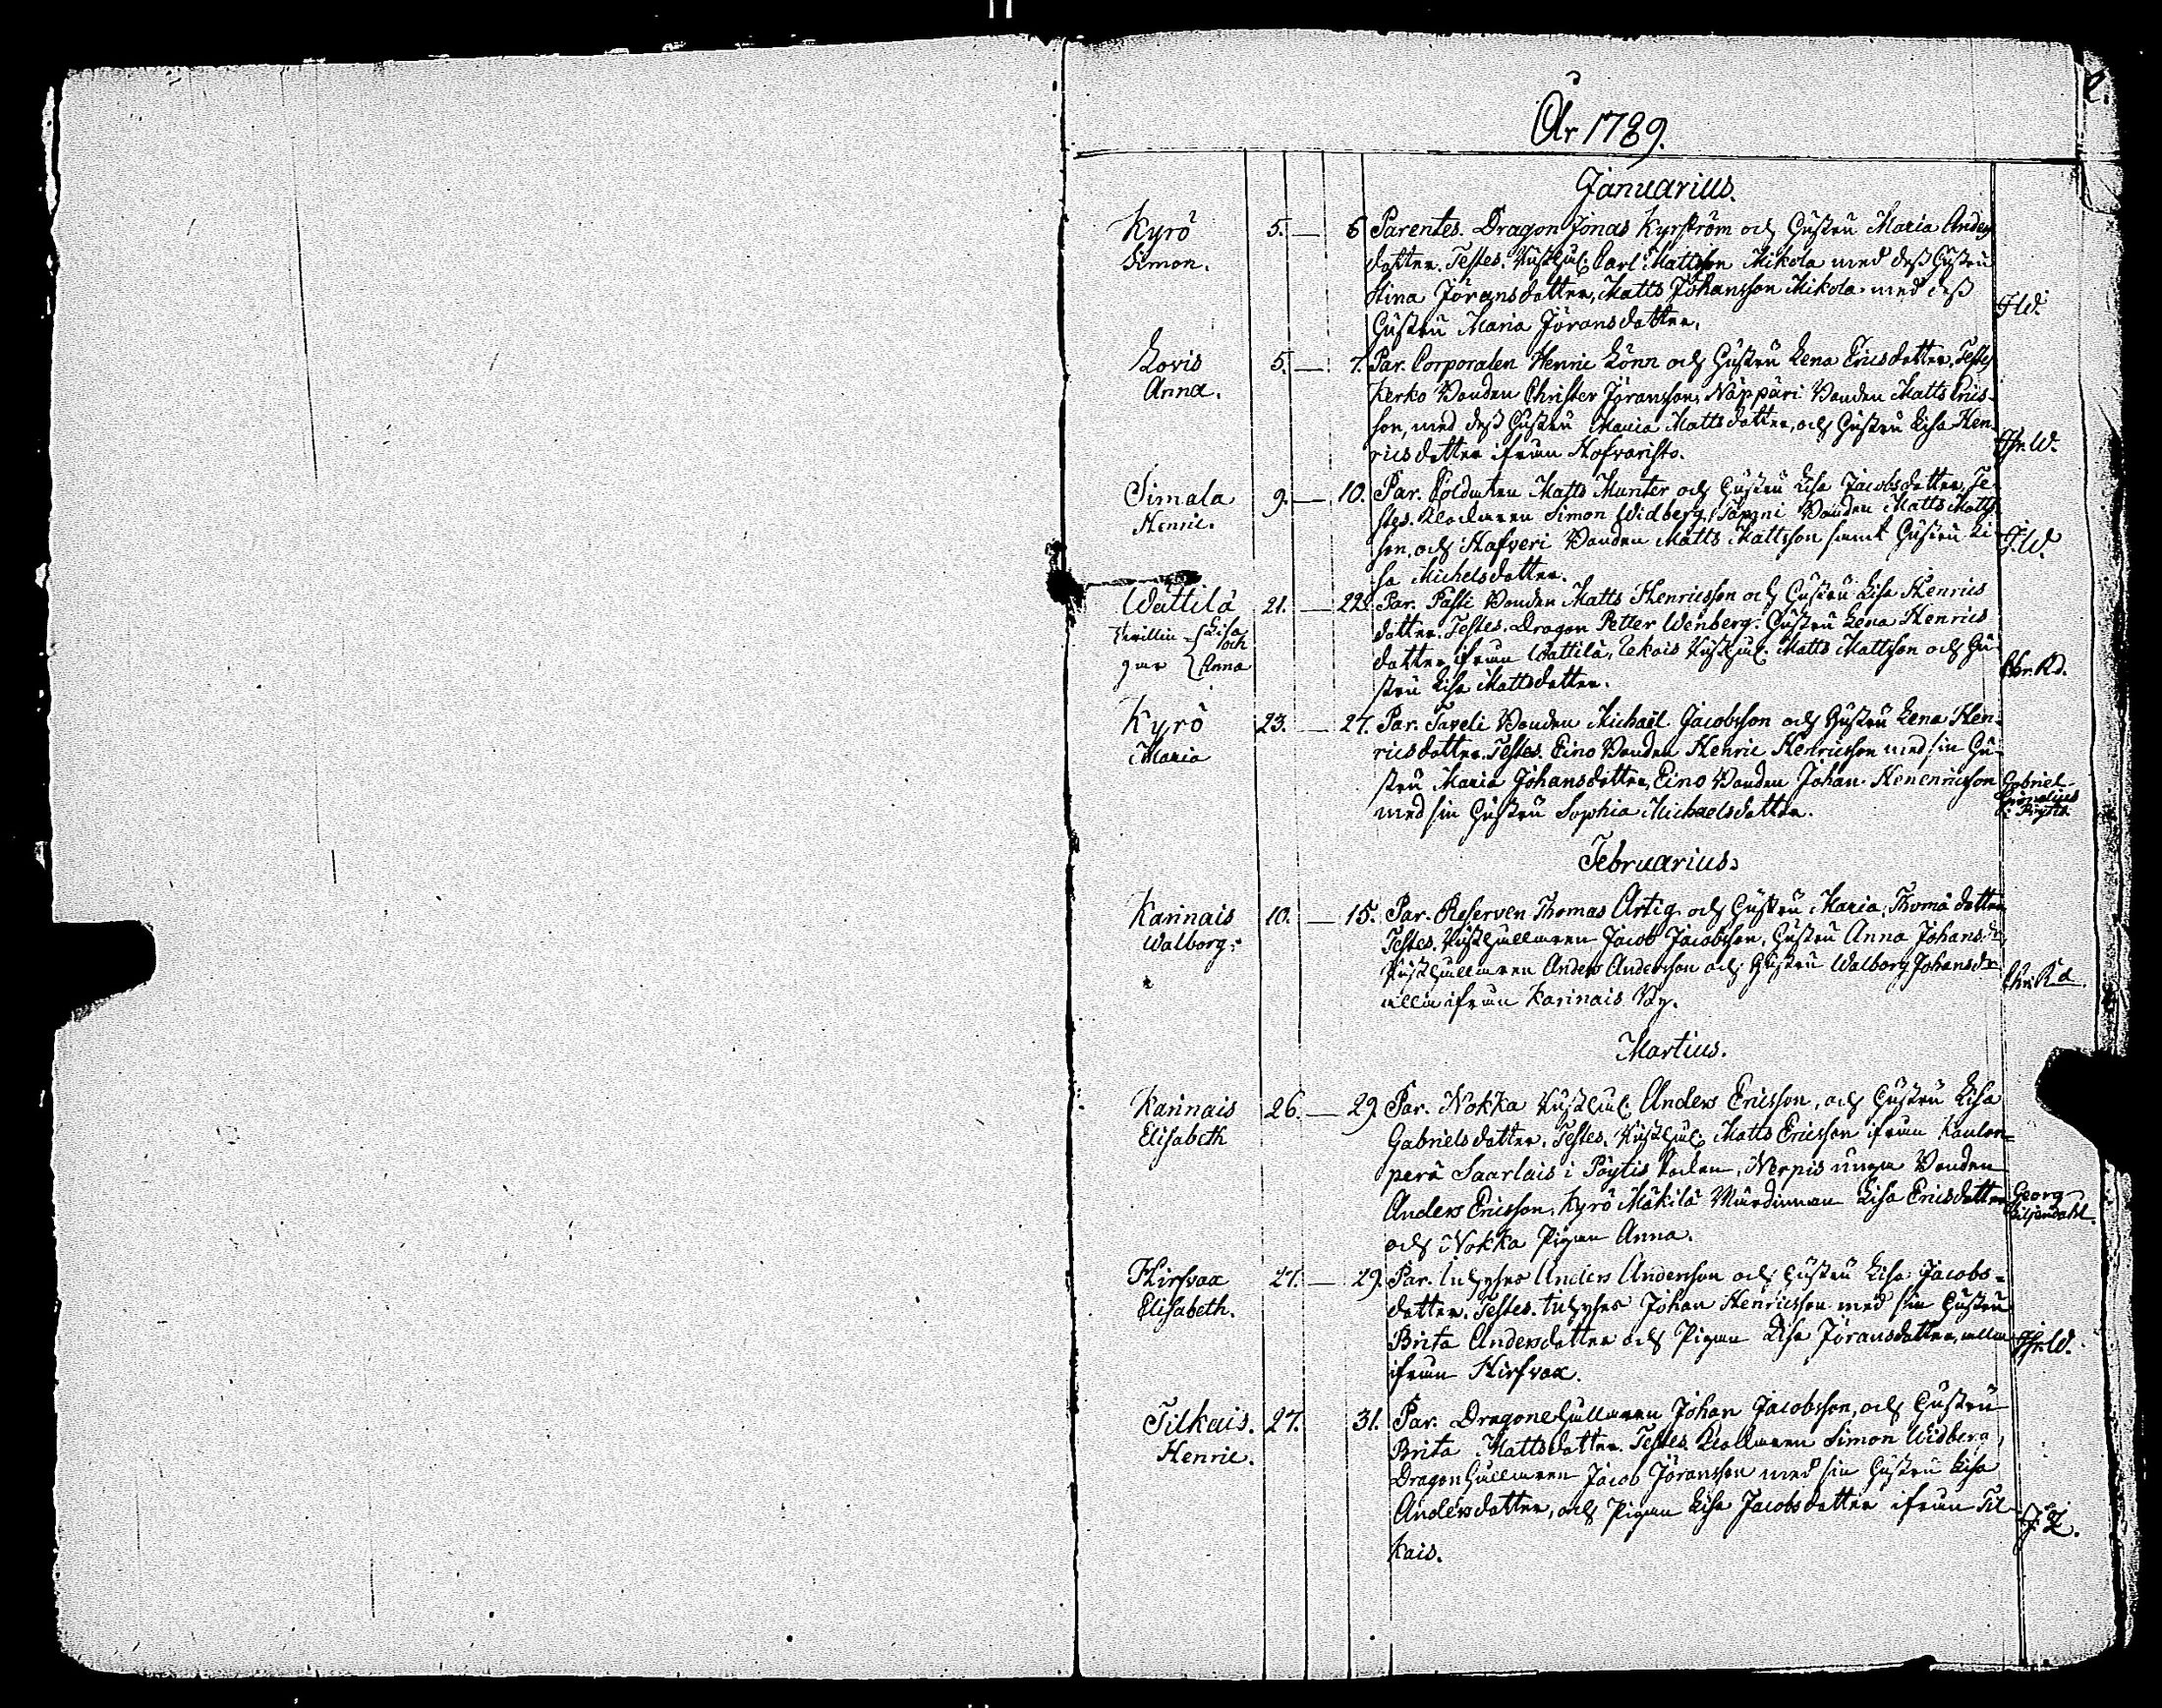 2.
År 1789.
Januarius.
Kyrö 5. — 6 Parentes. Dragon Jonas Kyrström och Hustru Maria Anders
Simon. dotter. Testes. Rusthål. Carl Mattsson Mikola med dess Hustru
Stina Jöransdotter, Matts Johansson Mikola med dess
Hustru Maria Jöransdotter. J.W.
Lovis 5. — 7. Par. Corporalen Henric Lönn och Hustru Lena Ericsdotter, Testes
Anna. Kerko Bonden Christer Jöransson, Näppäri Bonden Matts Erics-
son, med dess Hustru Maria Mattsdotter, och Hustru Lisa Hen-
ricsdotter ifrån Hofvaristo. Hr. W.
Simala 9. — 10. Par. Soldaten Matts Munter och Hustru Lisa Jacobsdotter, Te-
Henric. stes. Klockaren Simon Widberg, Bonden Matts Matts-
son, och Hafveri Bonden Matts Mattsson samt Hustru Li-
sa Michelsdotter. J.W.
Wättilä 21. — 22. Par. Passi Bonden Matts Henricsson och Hustru Lisa Henrics
Tvillin- { Lisa dotter. Testes. Dragon Petter Wenberg. Hustru Lena Henrics
och dotter ifrån Wättilä, Ukois Rusthål. Matts Mattsson och Hu-
gar { Anna stru Lisa Mattsdotter. Chr. Rd.
Kyrö 23. — 27. Par. Taveli Bonden Michaël Jacobsson och Hustru Lena Hen-
Maria ricsdotter. Testes. Eino Bonden Henric Henricsson med sin Hu-
stru Maria Johansdotter, Eino Bonden Johan Henenricsson Gabriel
med sin Hustru Sophia Michaelsdotter. i Pöytis
Februarius.
Karinais 10. — 15. Par. Reserven Thomas Artig och Hustru Maria Thomædotter
Walborg. Testes. Rusthållaren Jacob Jacobsson, Hustru Anna Johansdr,
Rusthållaren Anders Andersson och Hustru Walborg Johansdr
alla ifrån Karinais By. Chr. Rd.
Martius.
Karinais 26. — 29. Par. Nokka Rusthål. Anders Ericsson, och Hustru Lisa
Elisabeth Gabrielsdotter. Testes. Rusthål. Matts Ericsson ifrån Kaulan-
perä Saarlais i Pöytis Socken, Neppis unga Bonden
Anders Ericsson, Kyrö Mäkilä Wärdinnan Lisa Ericsdotter Georg
och Nokka Pigan Anna. Liljendahl.
Hirfvox 27. — 29. Par. Inhyses Anders Andersson och Hustru Lisa Jacobs-
Elisabeth. dotter. Testes. Inhyses Johan Henricsson med sin Hustru
Brita Andersdotter och Pigan Lisa Jöransdotter, alla
ifrån Hirfvox. Hr. W.
Tilkais. 27. 31. Par. Dragonehållaren Johan Jacobsson, och Hustru
Henric. Brita Mattsdotter. Testes. Klockaren Simon Widberg,
Dragonhållaren Jacob Jöransson med sin Hustru Lisa
Andersdotter, och Pigan Lisa Jacobsdotter ifrån Til-
kais. J. L.